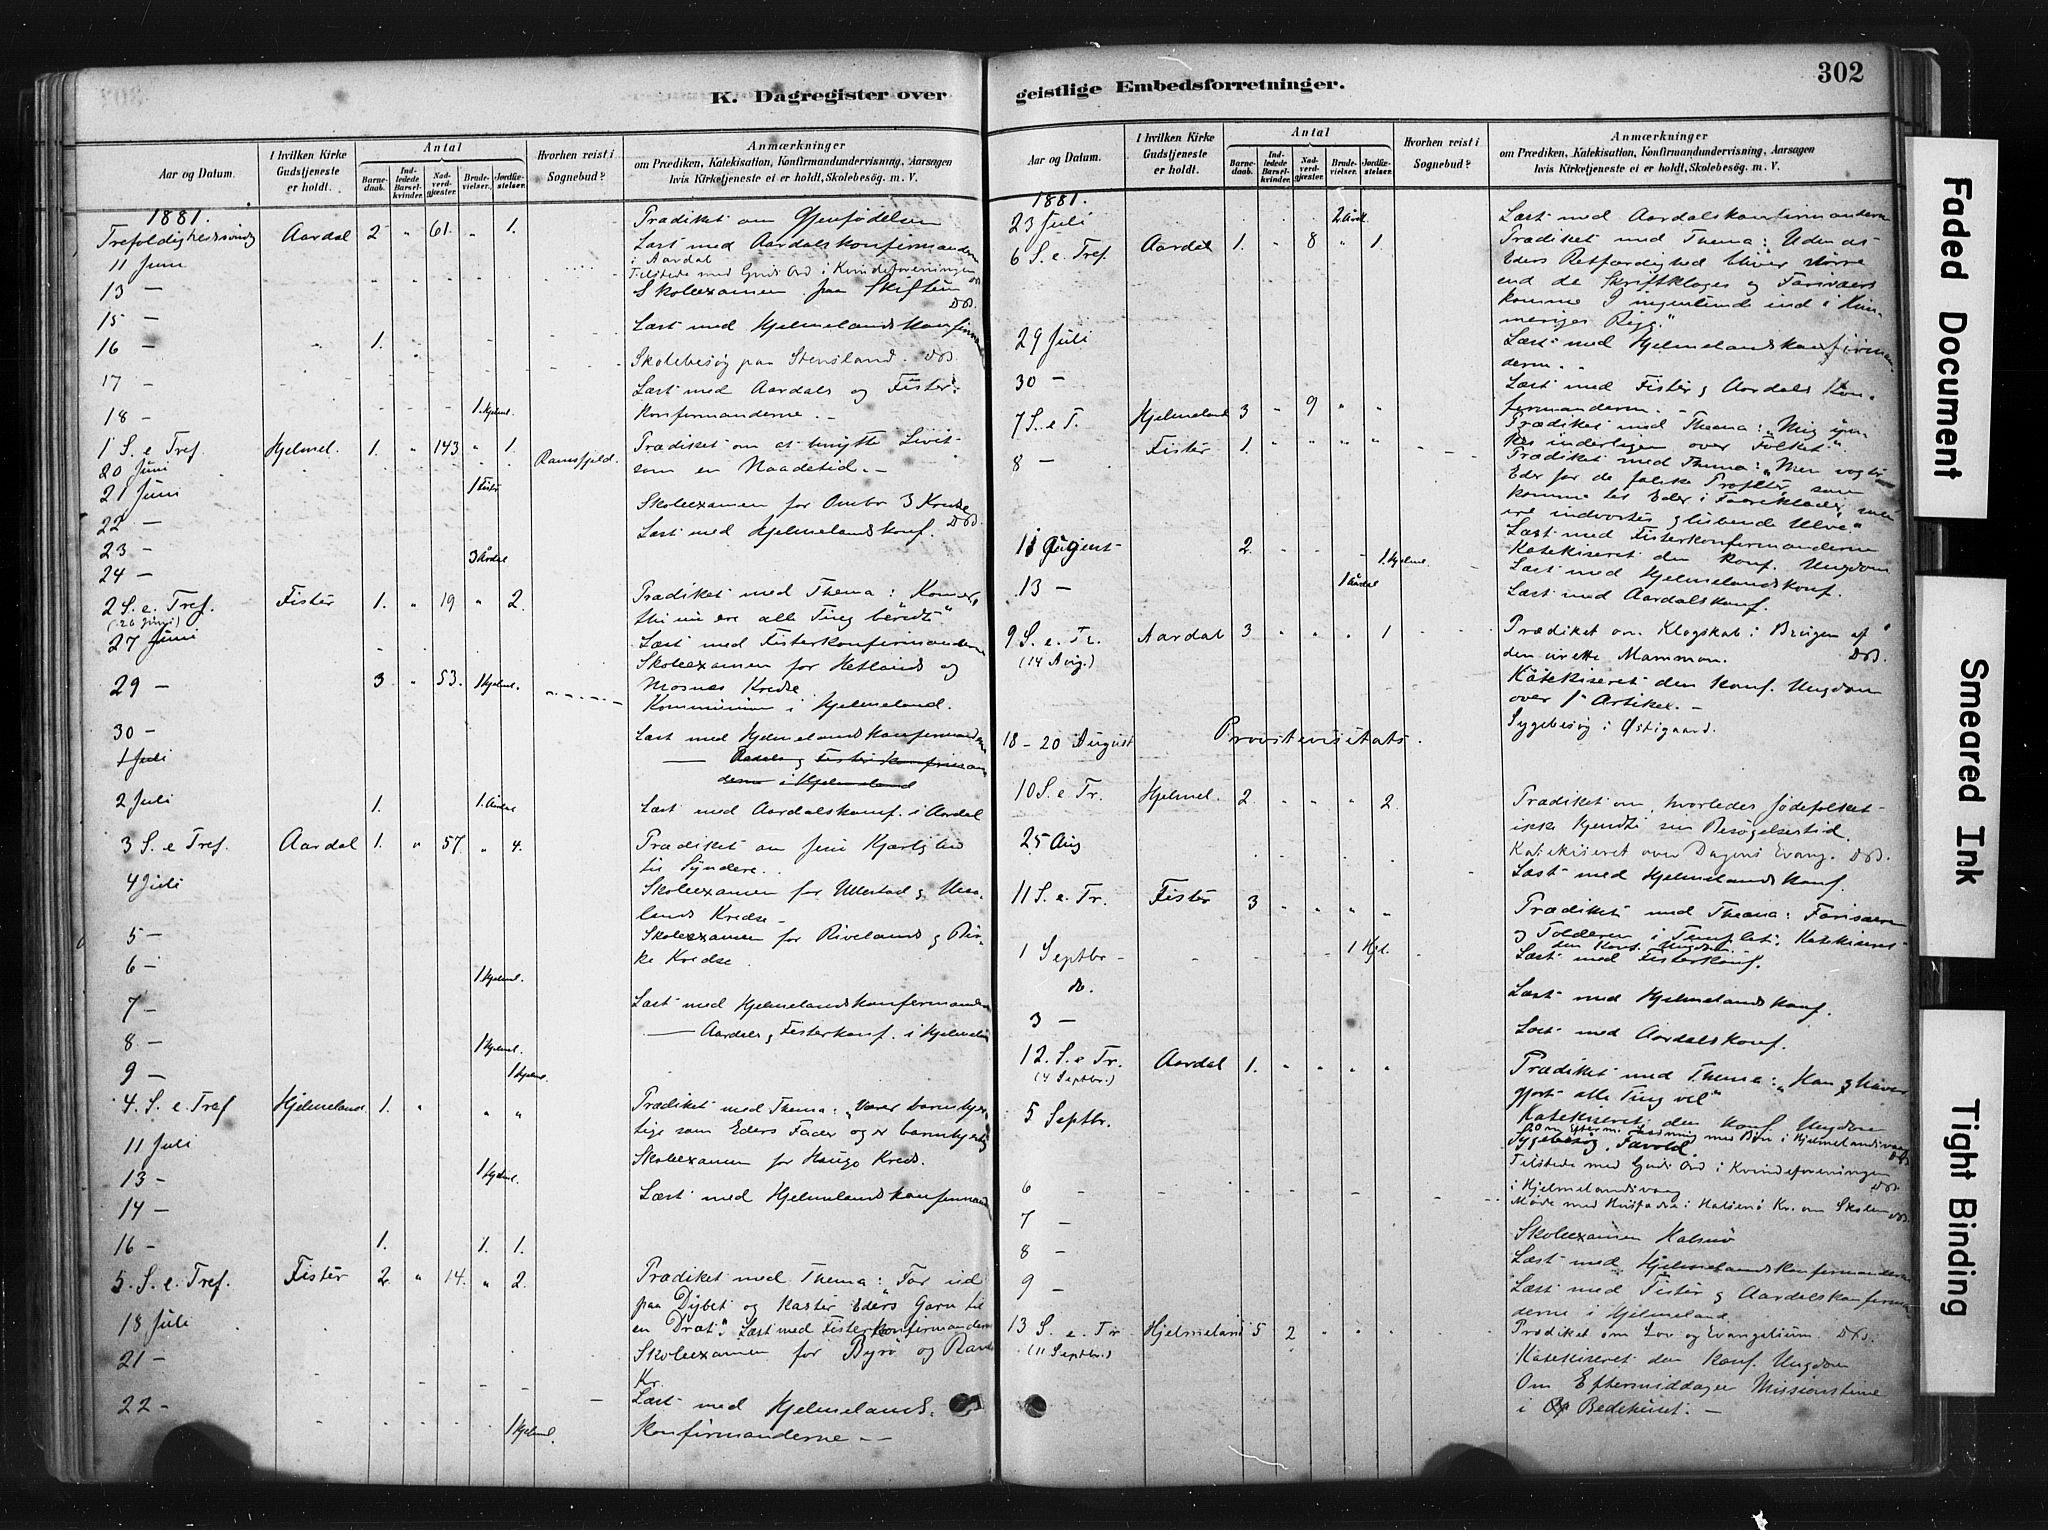 K. Dagregister over
Aar og Datum.
I hvilken Kirke Gudstjeneste er holdt.
Antal
Barnedaab.
Indledede Barselkvinder.
Nadverdgjester.
Brudevielser.
Jordfæstelser.
Hvorhen reist i Sognebud?
Anmærkninger
om Prædiken, Katekisation, Konfirmandundervisning, Aarsagen
hvis Kirketjeneste ei er holdt, Skolebesøg. m. V.
1881.
Trefoldighedssøndg Aardal 2 " 61. " 1. Prædiket om Gjenfødelsen
11 Juni Læst med Aardalskonfirmanderne
i Aardal
Tilstede med Guds Ord i Kvindeforeningen
13 — Skoleexamen paa Skiftun
15 —
Læst med Hjelmelandskonfirman
16 — 1.
Skolebesøg paa Stensland.
17 — Læst med Aardals og Fister-
18 — 1 Hjelml. konfirmanderne. —
1 S. e Tref. Hjelmel. 1. " 143 " 1. Prædiket om at benytte Livet
20 Juni Ramsfjeld. som en Naadetid. —
21 Juni 1 Fister
22 — Skoleexamen for Ombo 3 Kredse
23 — Læst med Hjelmelandskonf.
24 — 3 Årdal
2 S. e. Tref. Fister 1. " 19 " 2. Prædiket med Thema: Komer,
(26 Juni) thi nu ere alle Ting beredte"
27 Juni Læst med Fisterkonfirmanderne
Skoleexamen for Hetlands og
29 — 3 " 53. 1 Hjelml. Mosnes Kredse.
Kommunion i Hjelmeland.
30 — Læst med Hjelmelandskonfirmanderne
1 Juli — Aardals og Fister konfirman
derne i Hjelmeland
2 Juli 1. 1. Årdal Læst med Aardalskonf. i Aardal
3 S. e Tref. Aardal 1. " 57 " 4. Prædiket om Jesu Kjærlighed
til Syndere.
4 Juli Skoleexamen for Ullestad og
lands Kredse —
5 — Skoleexamen for Riveland og Bir-
6 — 1 Hjelml. ke Kredse.
7 — Læst med Hjelmelandskonfirmanderne
8 — 1 Hjelml. — Aardals og Fisterkonf. i Hjelmeland
9 — 1 Hjelml.
4. S. e Tref Hjelmeland 1. " " " Prædiket med Thema: „Værer barmhjer-
tige som Eders Fader og er barmhjertig
11 Juli Skoleexamen for Haugo Kreds.
13 — 1 Hjelml.
14 — Læst med Hjelmelandskonfirmand
16 — 1. 1. 1.
5. S. e. Tref. Fister 2. " 14. " 2. Prædiket med Thema: „Far ud
paa Dybet og kaster Eders Garn til
18 Juli en Dræt". Læst med Fisterkonfirmanderne
21 — Skoleexamen for Byrø og Rande
Kr.
22 — Læst med Hjelmelands.
1 Hjelml. Konfirmanderne —
geistlige Embedsforretninger.
302
Aar og Datum.
I hvilken Kirke Gudstjeneste er holdt.
Antal
Barnedaab.
Indledede Barselkvinder.
Nadverdgjester.
Brudevielser.
Jordfæstelser.
Hvorhen reist i Sognebud?
Anmærkninger
om Prædiken, Katekisation, Konfirmandundervisning, Aarsagen
hvis Kirketjeneste ei er holdt, Skolebesøg. m. V.
1881.
23 Juli 2 Årdl. Læst med Aardalskonfirmanderne
6 S. e. Tref. Aardal 1. " 8 " 1. Prædiket med Thema: Uden at
Eders Retfærdighed bliver større
end de Skriftkloges og Farisæers
komme I ingenlunde ind i Him-
meriges Rige."
29 Juli Læst med Hjelmelandskonfirman
derne.
30 — Læst med Fister og Aardals Kon-
firmanderne. —
7 S. e T. Hjelmeland 3 " 9 " " Prædiket med Thema: „Mig yn-
kes inderligen over Folket".
8 — Fister 1. " " " " Prædiket med Thema: „Men vogter
Eder for de falske Profeter, som
komme til Eder i Faareklæder, men
ere indvortes glubende Ulve."
Læst med Fisterkonfirmanderne
11 August 2. 1. Hjelml. Katekiseret den konf. Ungdom
Læst med Hjelmelandskonf.
13 — 1 Årdal Læst med Aardalskonf.
9 S. e. Tr. Aardal 3 " " " 1 Prædiket om Klogskab i Brugen af
(14 Aug.) den urette Mammon.
Katekiseret den konf. Ungdom
over 1ste Artikel. —
Sygebesøg i Østigaard.
18 - 20 August Provstevisitats.
10 S. e Tr. Hjelmel. 2. " " " 2. Prædiket om, hvorledes Jødefolket
ikke kjendte sin Besøgelsestid.
25 Aug Katekiseret over Dagens Evang.
Læst med Hjelmelandskonf.
11 S. e. Tr. Fister 3 " " " " Prædiket med Thema: Farisæeren
og Tolderen i Templet. Katekiseret
den Konf. Ungdom.
1 Septbr — 1 Hjl. Læst med Fisterkonf.
do. Læst med Hjelmelandskonf.
3 — Læst med Aardalskonf.
12. S. e Tr. Aardal 1. " " " " Prædiket med Thema: „Han haver
(4 Septbr.) gjort alle Ting vel"
5 Septbr. Katekiseret den konf. Ungdom
Om Efterm. Læsning med Børn i Hjelmelandsvaag
Sygebesøg
Tilstede med Guds Ord i Kvindeforeningen
6 — i Hjelmelandsvaag
7 — Møde med Husfædre i Halsnø Kr. om Skolen
8 — Skoleexamen Halsnø
Læst med Hjelmelandskonfirmanderne
9 — Læst med Fister og Aardalskonfirman
derne i Hjelmeland.
13 S. e. Tr Hjelmeland 5 2 " " " Prædiket om Lov og Evangelium.
(11 Septbr.) Katekiseret den konf. Ungdom
Om Eftermiddagen Missionstime
i Bedehuset. —
Faded Document
Smeared Ink
Tight Binding